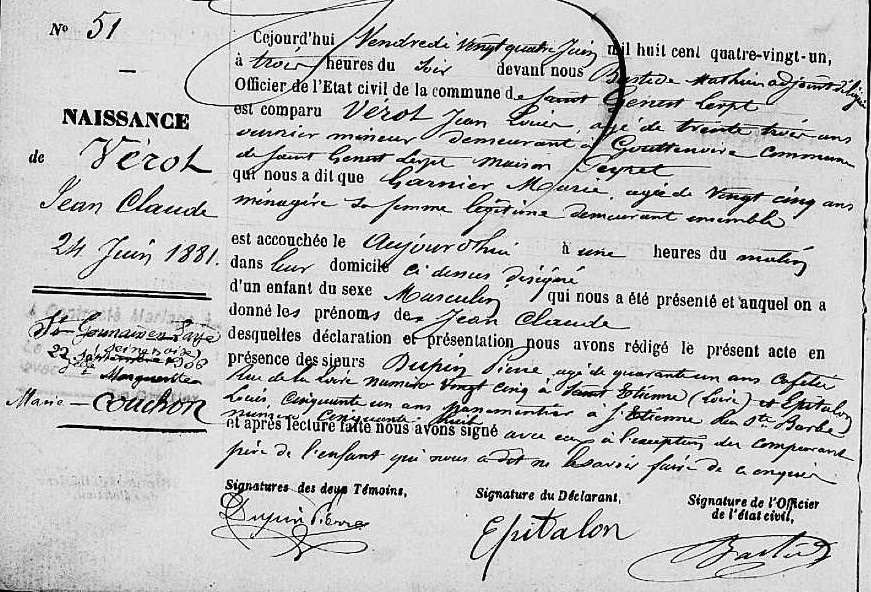 N° 51
NAISSANCE
de Vérot
Jean Claude
24 Juin 1881.
St Germain en Laye
(Seine et Oise)
22 Septembre 1906
Marguerite
Marie - Couchon
Cejourd'hui Vendredi vingt quatre Juin mil huit cent quatre-vingt-un,
à trois heures du soir devant nous Bastide Mathieu adjoint délégué
Officier de l'Etat civil de la commune de Saint Genest Lerpt
est comparu Vérot Jean Louis, agé de trente trois ans
ouvrier mineur demeurant à Gouttenoire commune
de Saint Genest Lerpt maison Peyret
qui nous a dit que Garnier Marie, agée de vingt cinq ans
ménagère sa femme légitime demeurant ensemble
est accouchée le Aujourd'hui à une heures du matin
dans leur domicile ci dessus désigné
d'un enfant du sexe Masculin qui nous a été présenté et auquel on a
donné les prénoms de Jean Claude
desquelles déclaration et présentation nous avons rédigé le présent acte en
présence des sieurs Dupin Pierre, agé de quarante un ans cafetier
Rue de la Loire numéro vingt cinq à Saint Etienne (Loire) et Epitalon
Louis, cinquante un ans passementier à St Etienne Rue Ste Barbe
numéro cinquante huit
et après lecture faite nous avons signé avec eux à l'exception du comparant
père de l'enfant qui nous a dit ne le savoir faire de ce enquis
Signatures des deux Témoins, Signature du Déclarant, Signature de l'Officier
de l'état civil,
Dupin Pierre Epitalon Bastide